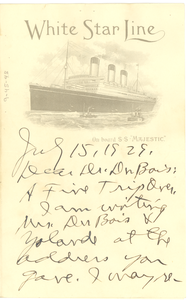 White Star Line
On board S.S. "MAJESTIC"
July 15, 1929.
Dear Dr. Du Bois:
A Fine Trip Over.
I am writing
Mrs. Du Bois &
Yolande at the
address you
gave. I may re-